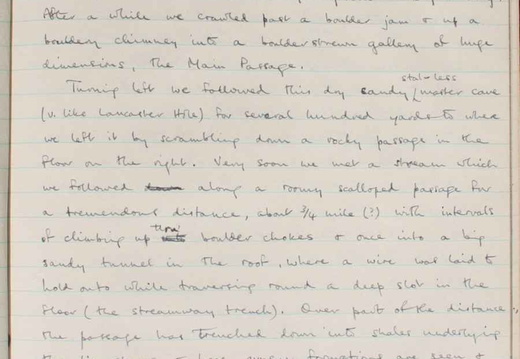 After a while we crawled past a boulder jam & up a
bouldery chimney into a boulderstrewn gallery of huge
dimensions, the Main Passage.
stal-less
Turning left we followed this dry sandy master cave
(v. like Lancaster Hole) for several hundred yards to where
we left it by scrambling down a rocky passage in the
floor on the right. Very soon we met a stream which
we followed along a roomy scalloped passage for
a tremendous distance, about 3/4 mile (?) with intervals
thru
of climbing up boulder chokes & once into a big
sandy tunnel in the roof, where a wire was laid to
hold onto while traversing round a deep slot in the
floor (the streamway trench). Over part of the distance
the passage has trenched down into shales underlying
the formations are seen &